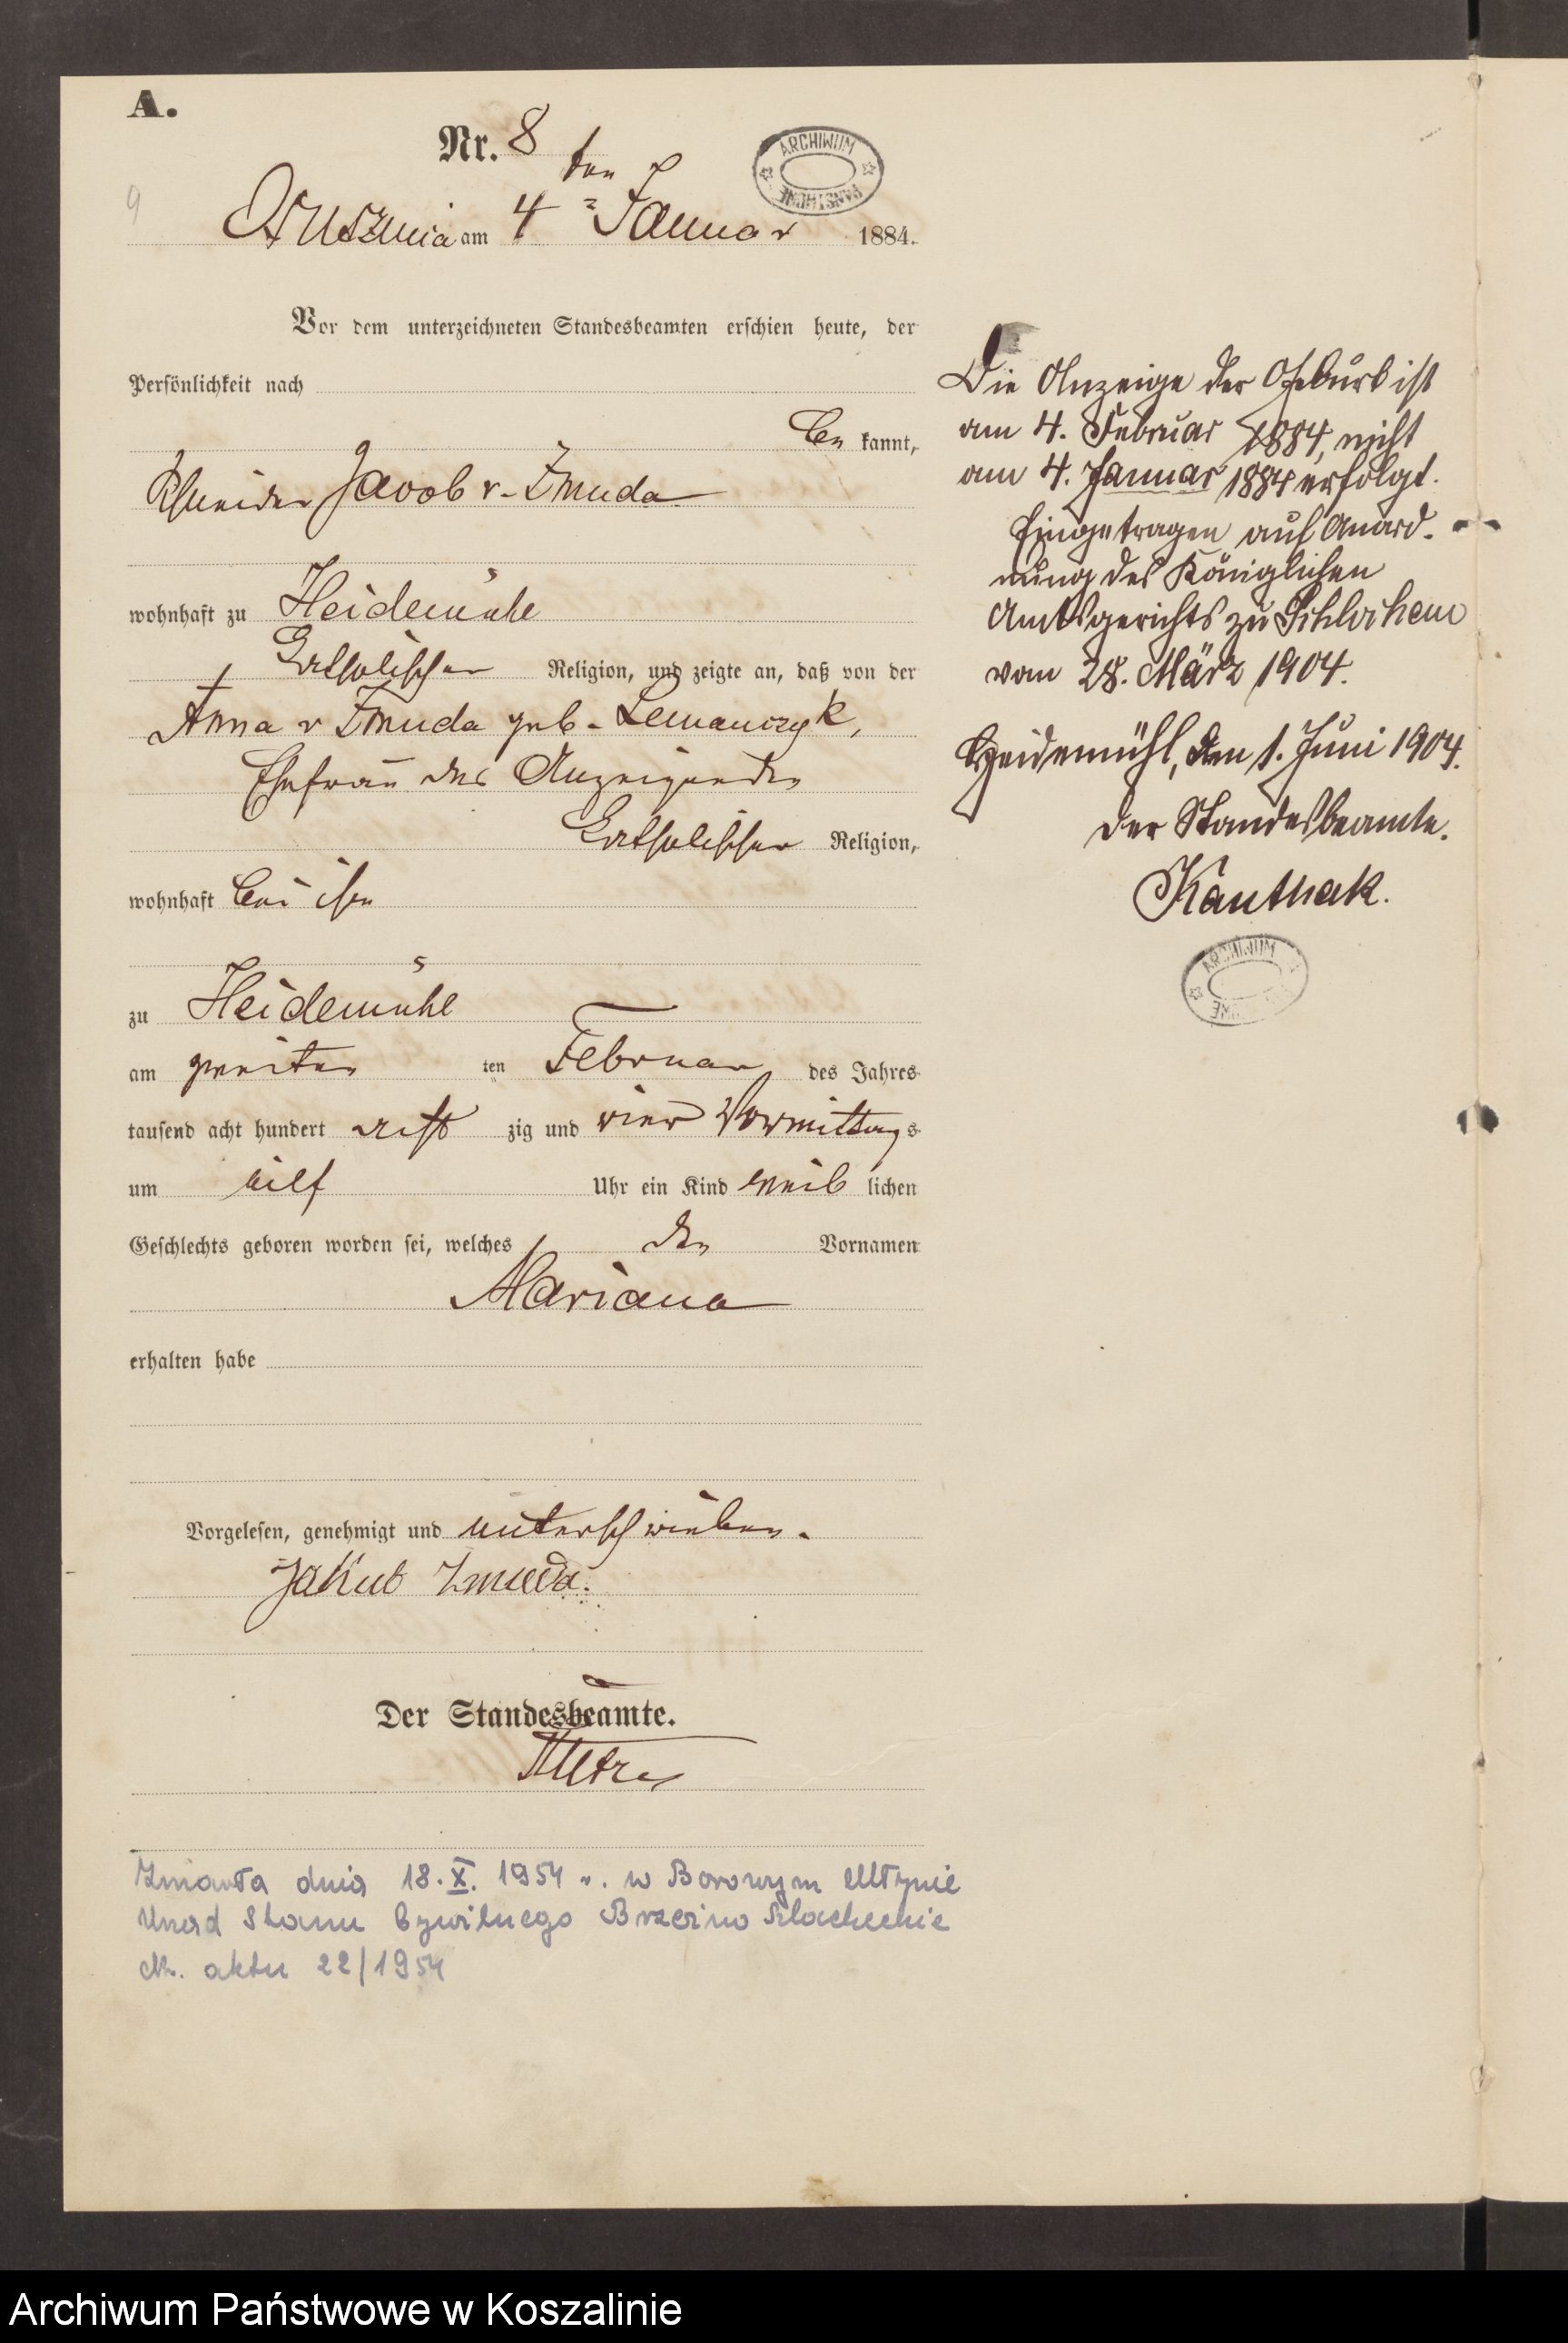 A.
Nr. 8
9
Ossusznica am 4 ten Januar 1884.
ARCHIWUM PAŃSTWOWE
Vor dem unterzeichneten Standesbeamten erschien heute, der
Persönlichkeit nach
be kannt,
Schneider Jacob v. Zmuda
wohnhaft zu Heidemühl
katholischer Religion, und zeigte an, daß von der
Anna v Zmuda geb. Lemanczyk,
Ehefrau des Anzeigenden
katholischer Religion,
wohnhaft bei ihm
zu Heidemühl
am zweiten ten Februar des Jahres
tausend acht hundert acht zig und vier Vormittag s
um eilf Uhr ein Kind weib lichen
Geschlechts geboren worden sei, welches den Vornamen
Mariana
erhalten habe
Vorgelesen, genehmigt und unterschrieben.
Jakub Zmuda.
Der Standesbeamte.
Zmarła dnia 18.X. 1954 r. w Borowym Młynie
Urząd Stanu Cywilnego Brzeźno Szlacheckie
Nr. aktu 22/1954
Die Anzeige der Geburt ist
am 4. Februar 1884, nicht
am 4. Januar 1884 erfolgt.
Eingetragen auf Anord-
nung des Königlichen
Amtsgerichts zu Schlochau
vom 28. März 1904.
Heidemühl, den 1. Juni 1904.
Der Standesbeamte.
Kanthak.
ARCHIWUM
Archiwum Państwowe w Koszalinie